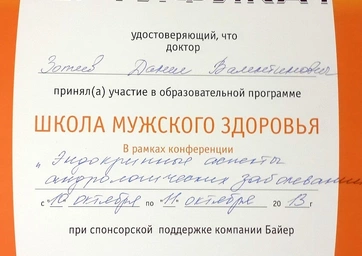 удостоверяющий, что
доктор
Зотеев Данил Валентинович
принял(а) участие в образовательной программе
ШКОЛА МУЖСКОГО ЗДОРОВЬЯ
В рамках конференции
„Эндокринные аспекты
андрологических заболеваний
с 10 октября по 11 октября 2013 г
при спонсорской поддержке компании Байер